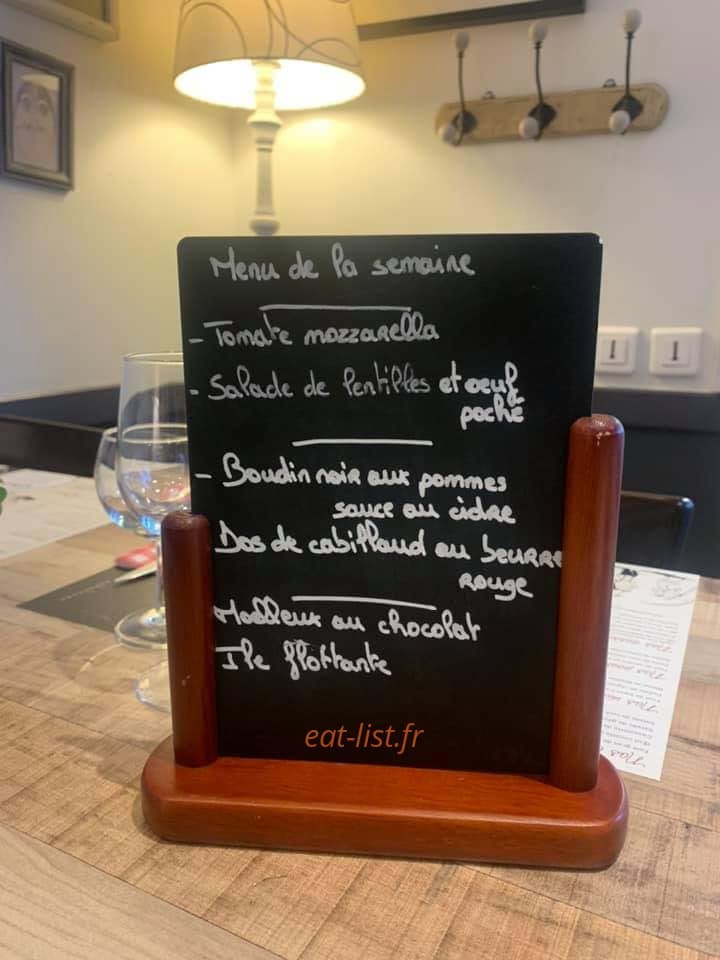 Menu de la semaine
- Tomate mozzarella
- Salade de lentilles et oeuf
poché
- Boudin noir aux pommes
sauce au cidre
Dos de cabillaud au beurre
rouge
Moelleux au chocolat
Ile flottante
eat-list.fr